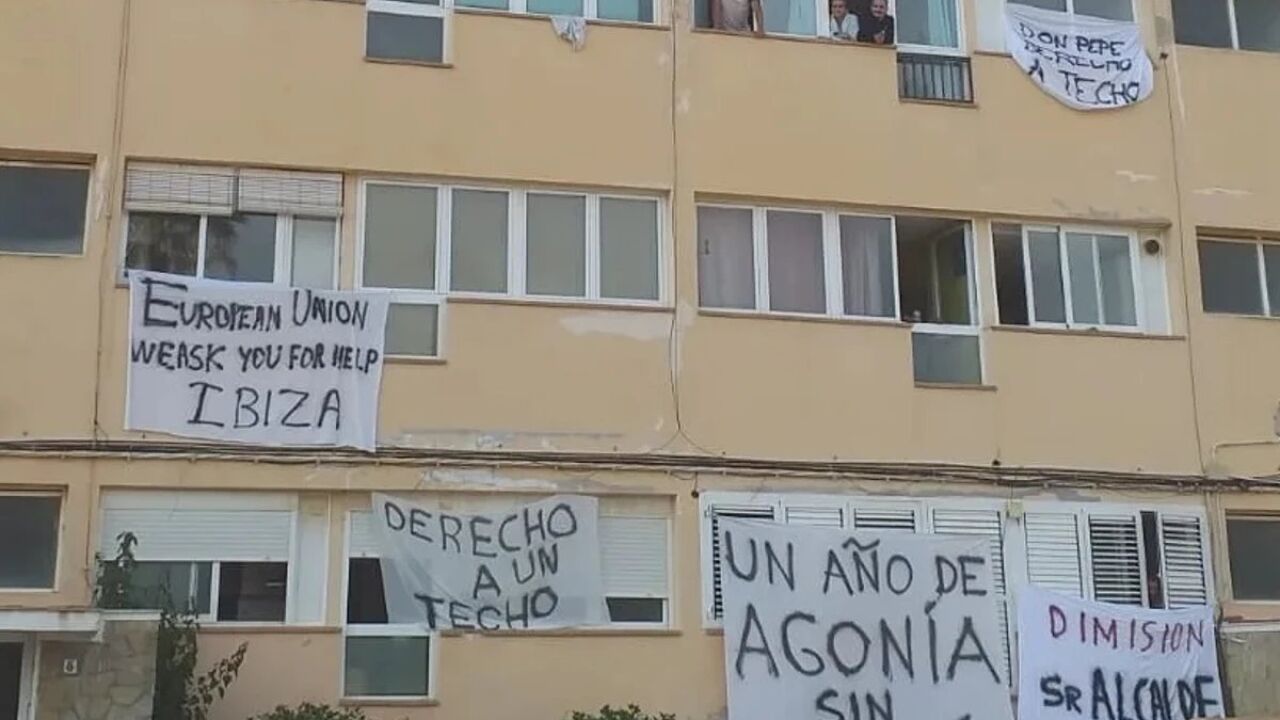 DON PEPE
DERECHO
A TECHO
EUROPEAN UNION
WE ASK YOU FOR HELP
IBIZA
DERECHO
A UN
TECHO
UN AÑO DE
AGONÍA
SIN
DIMISION
SR ALCALDE
6